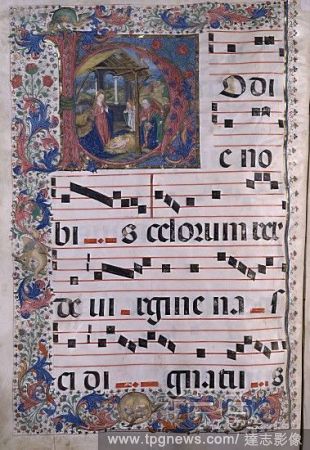 Hodi
e no
bi s celorum rex
de ui rgine na s
ci di gnatu s
www.tpgnews.com/ 達志影像